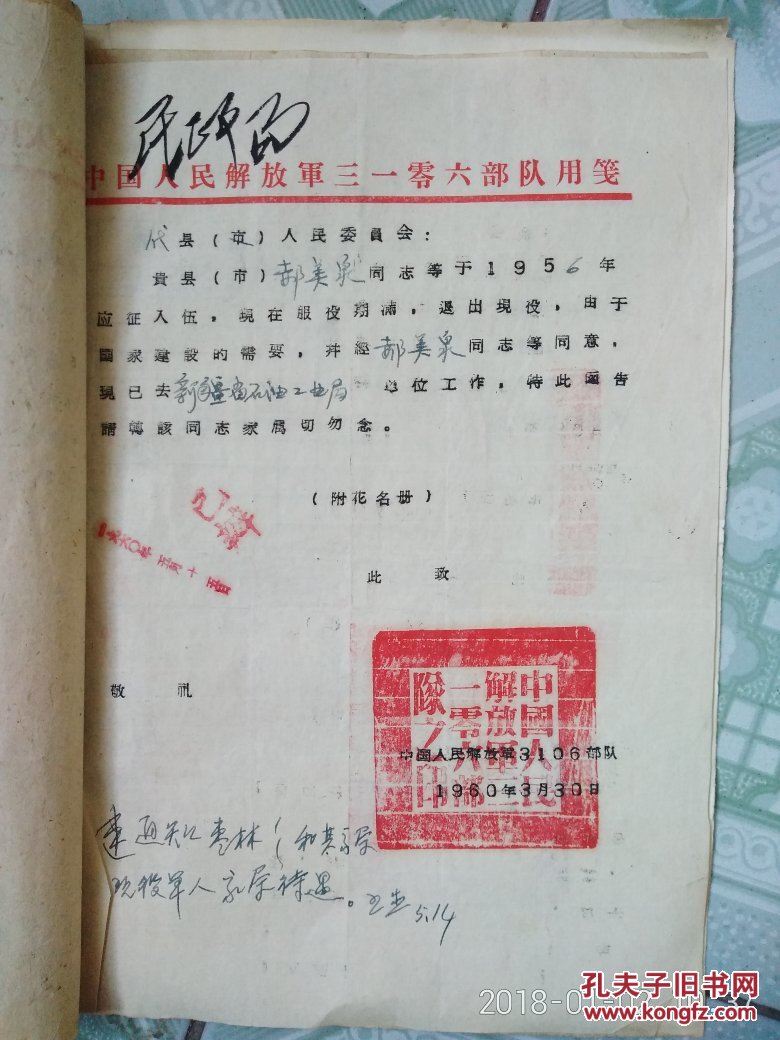 民政局
中国人民解放軍三一零六部队用笺
代县（市）人民委員会：
貴县（市）郝美泉同志等于1956年
应征入伍，現在服役期滿，退出現役，由于
國家建設的需要，幷經郝美泉同志等同意，
現已去新疆省石油工业局 单位工作，特此函告
請轉該同志家属切勿念。
（附花名册）
已办
一九六〇年五月十五日
此 致
敬 礼
中國人民
解放軍三
一零六部
隊之印
中国人民解放軍3106部队
1960年3月30日
现役军人家属待遇。
5.14
2018-01-02
孔夫子旧书网
www.kongfz.com